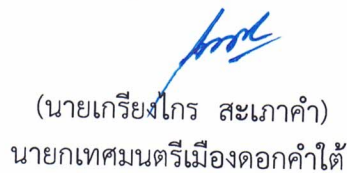 (นายเกรียงไกร สะเภาคำ)
นายกเทศมนตรีเมืองดอกคำใต้